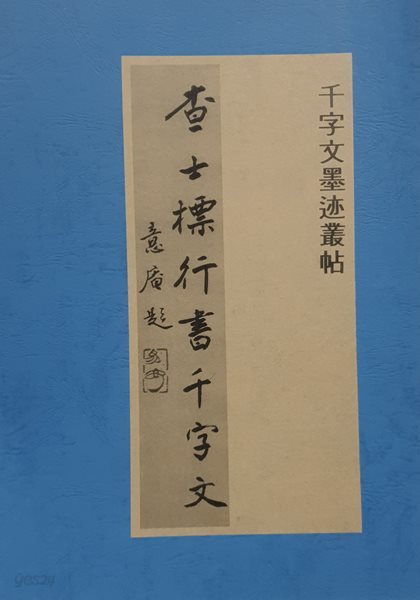 千字文墨迹叢帖
查士標行書千字文
意庵題
yes24